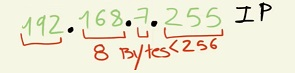 192.168.7.255 IP
8 Bytes<256